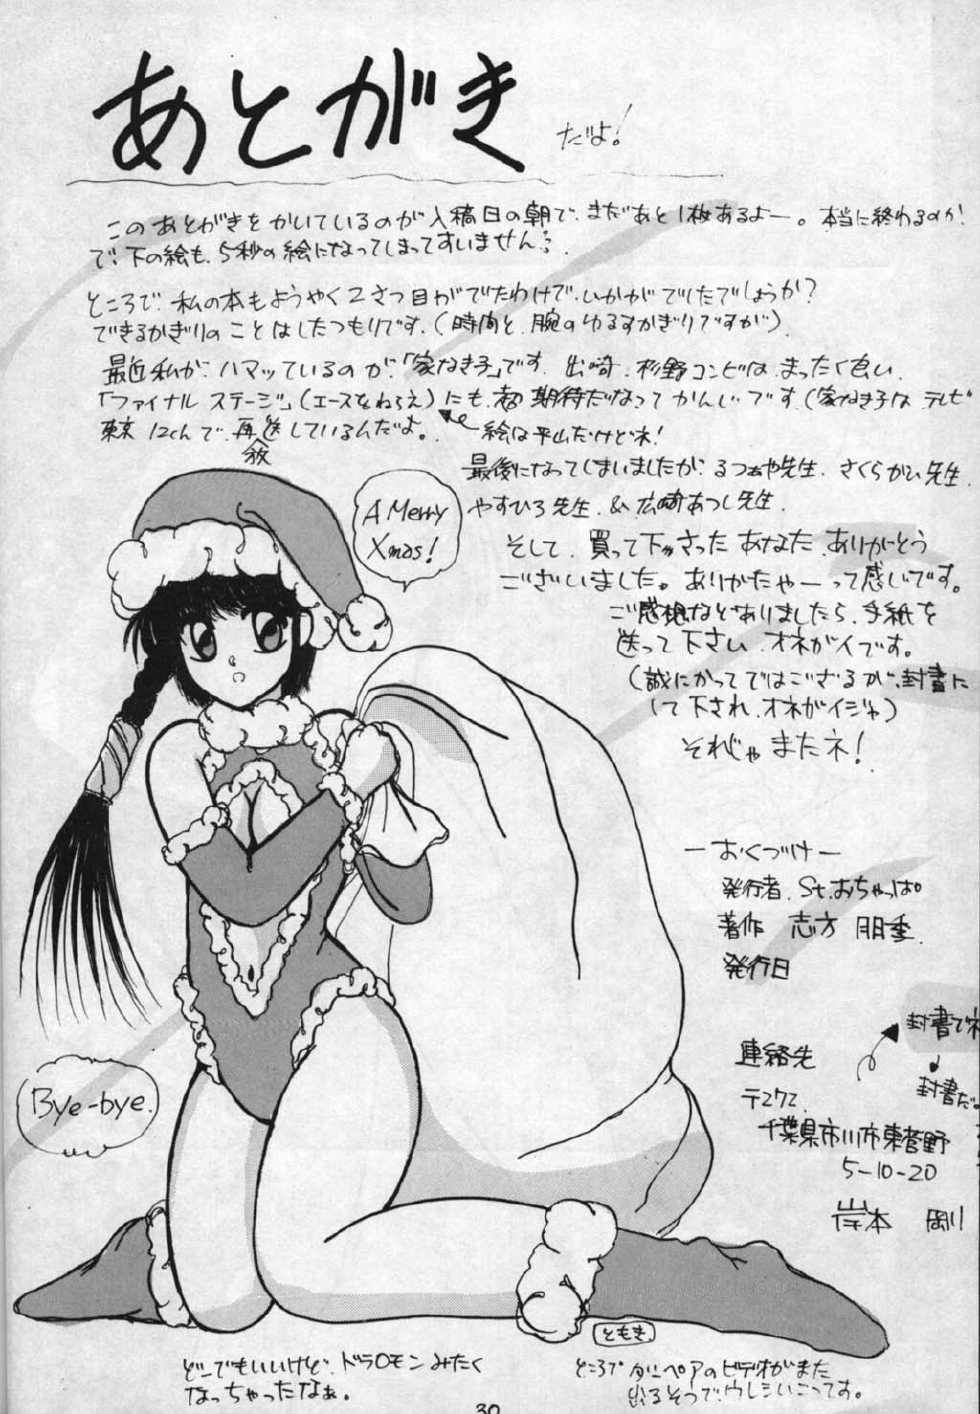 あとがき
だよ!
このあとがきをかいているのが入稿日の朝で、まだあと1枚あるよー。本当に終わるのか!
で、下の絵も、5秒の絵になってしまってすいません
ところで、私の本もようやく2さつ目がでたわけで、いかがでしたでしょうか?
できるかぎりのことはしたつもりです。(時間と、腕のゆるすかぎりですが)
最近私が、ハマッているのが、「家なき子」です。出崎、杉野コンビは、まったく良い、
「ファイナルステージ」、(エースをねらえ)にも、期待だなってかんじです(家なき子は、テレビ
東京12chで、再放送しているんだよ。
絵は平山だけどネ!
最後になってしまいましたが、るつぼや先生、さくらがい先生、
やすひろ先生、&広崎あつし先生、
そして、買って下さったあなた、ありがとう
ございました。ありがたやーって感じです。
ご感想などありましたら、手紙を
送って下さい、オネガイです。
(誠にかってではござるが、封書に
して下され、オネガイジャ)
それじゃまたネ!
A Merry
Xmas!
ーおくづけー
発行者、St.おちゃっぱ
著作 志方 朋季
発行日
封書でネ
封書だよ
連絡先
〒272
千葉県市川市東菅野
5-10-20
岸本 剛
Bye-bye.
ともき
どこでもいいけど、ドラ〇モンみたく
なっちゃったなぁ。
ところで ダーペアのビデオがまた
出るそうで、ウレシいこってす。
30